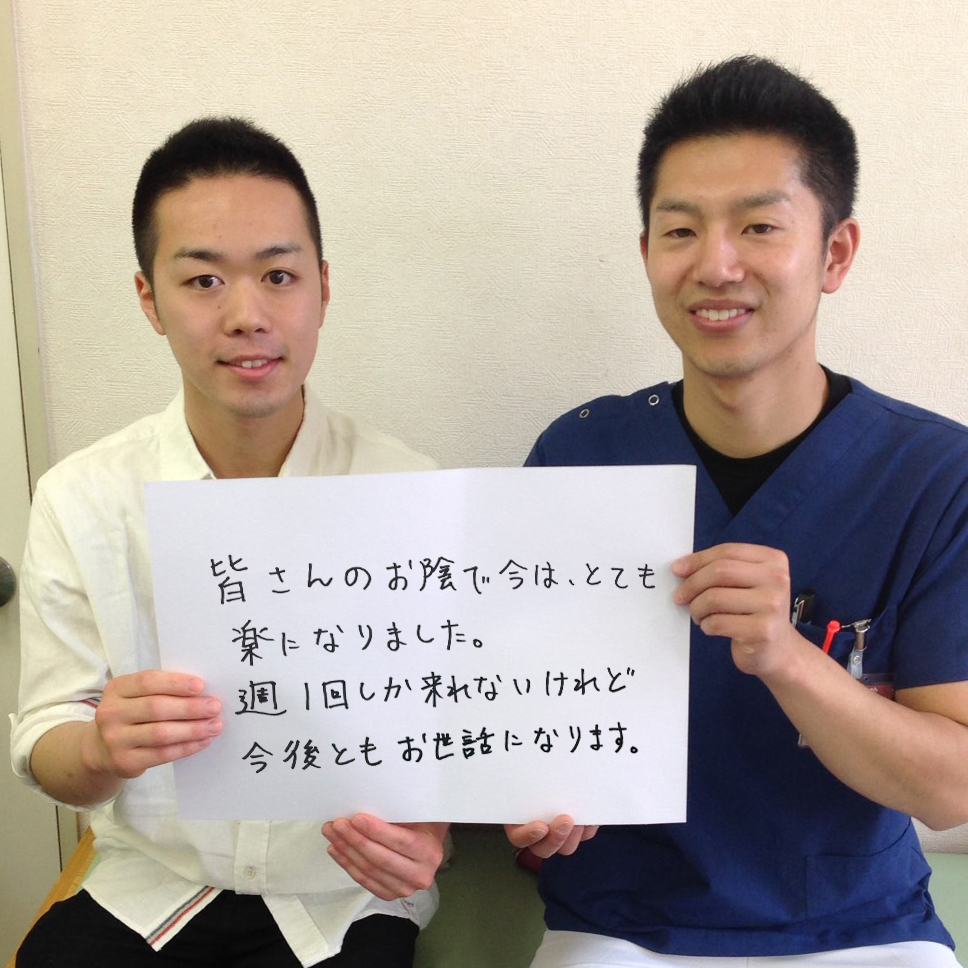 皆さんのお陰で今は、とても
楽になりました。
週1回しか来れないけれど
今後ともお世話になります。